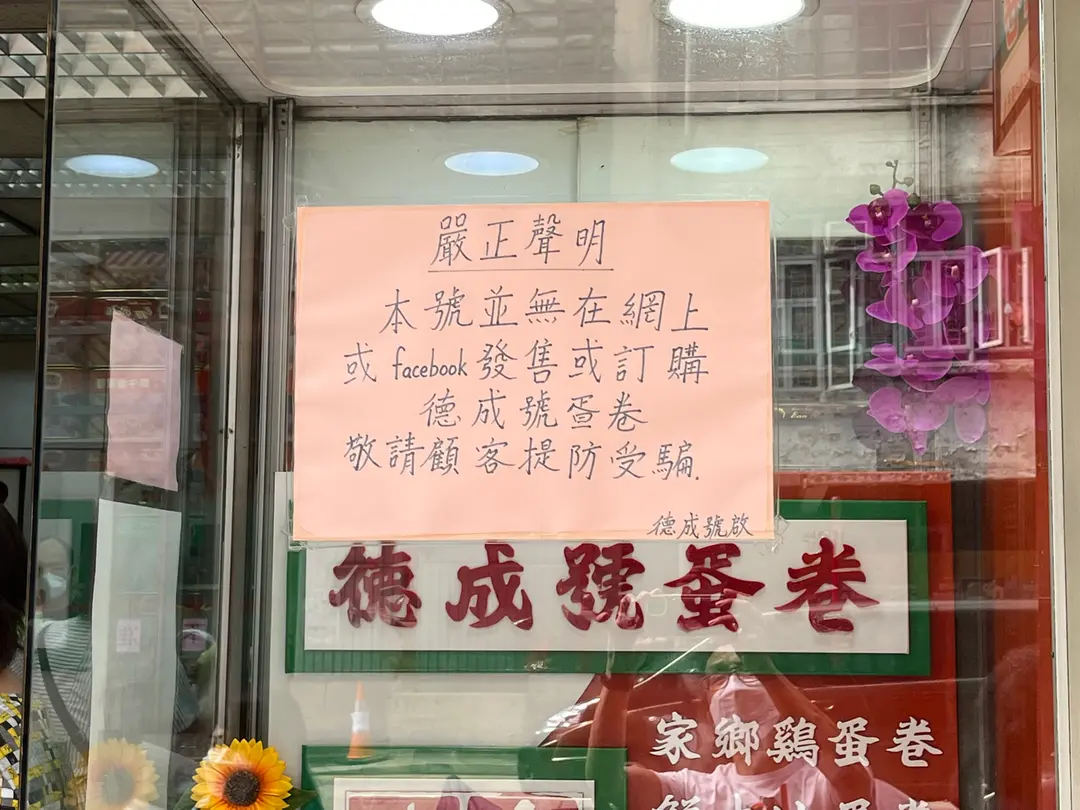 嚴正聲明
本號並無在網上
或 facebook 發售或訂購
德成號蛋卷
敬請顧客提防受騙.
德成號啟
德成號蛋卷
家鄉鷄蛋卷